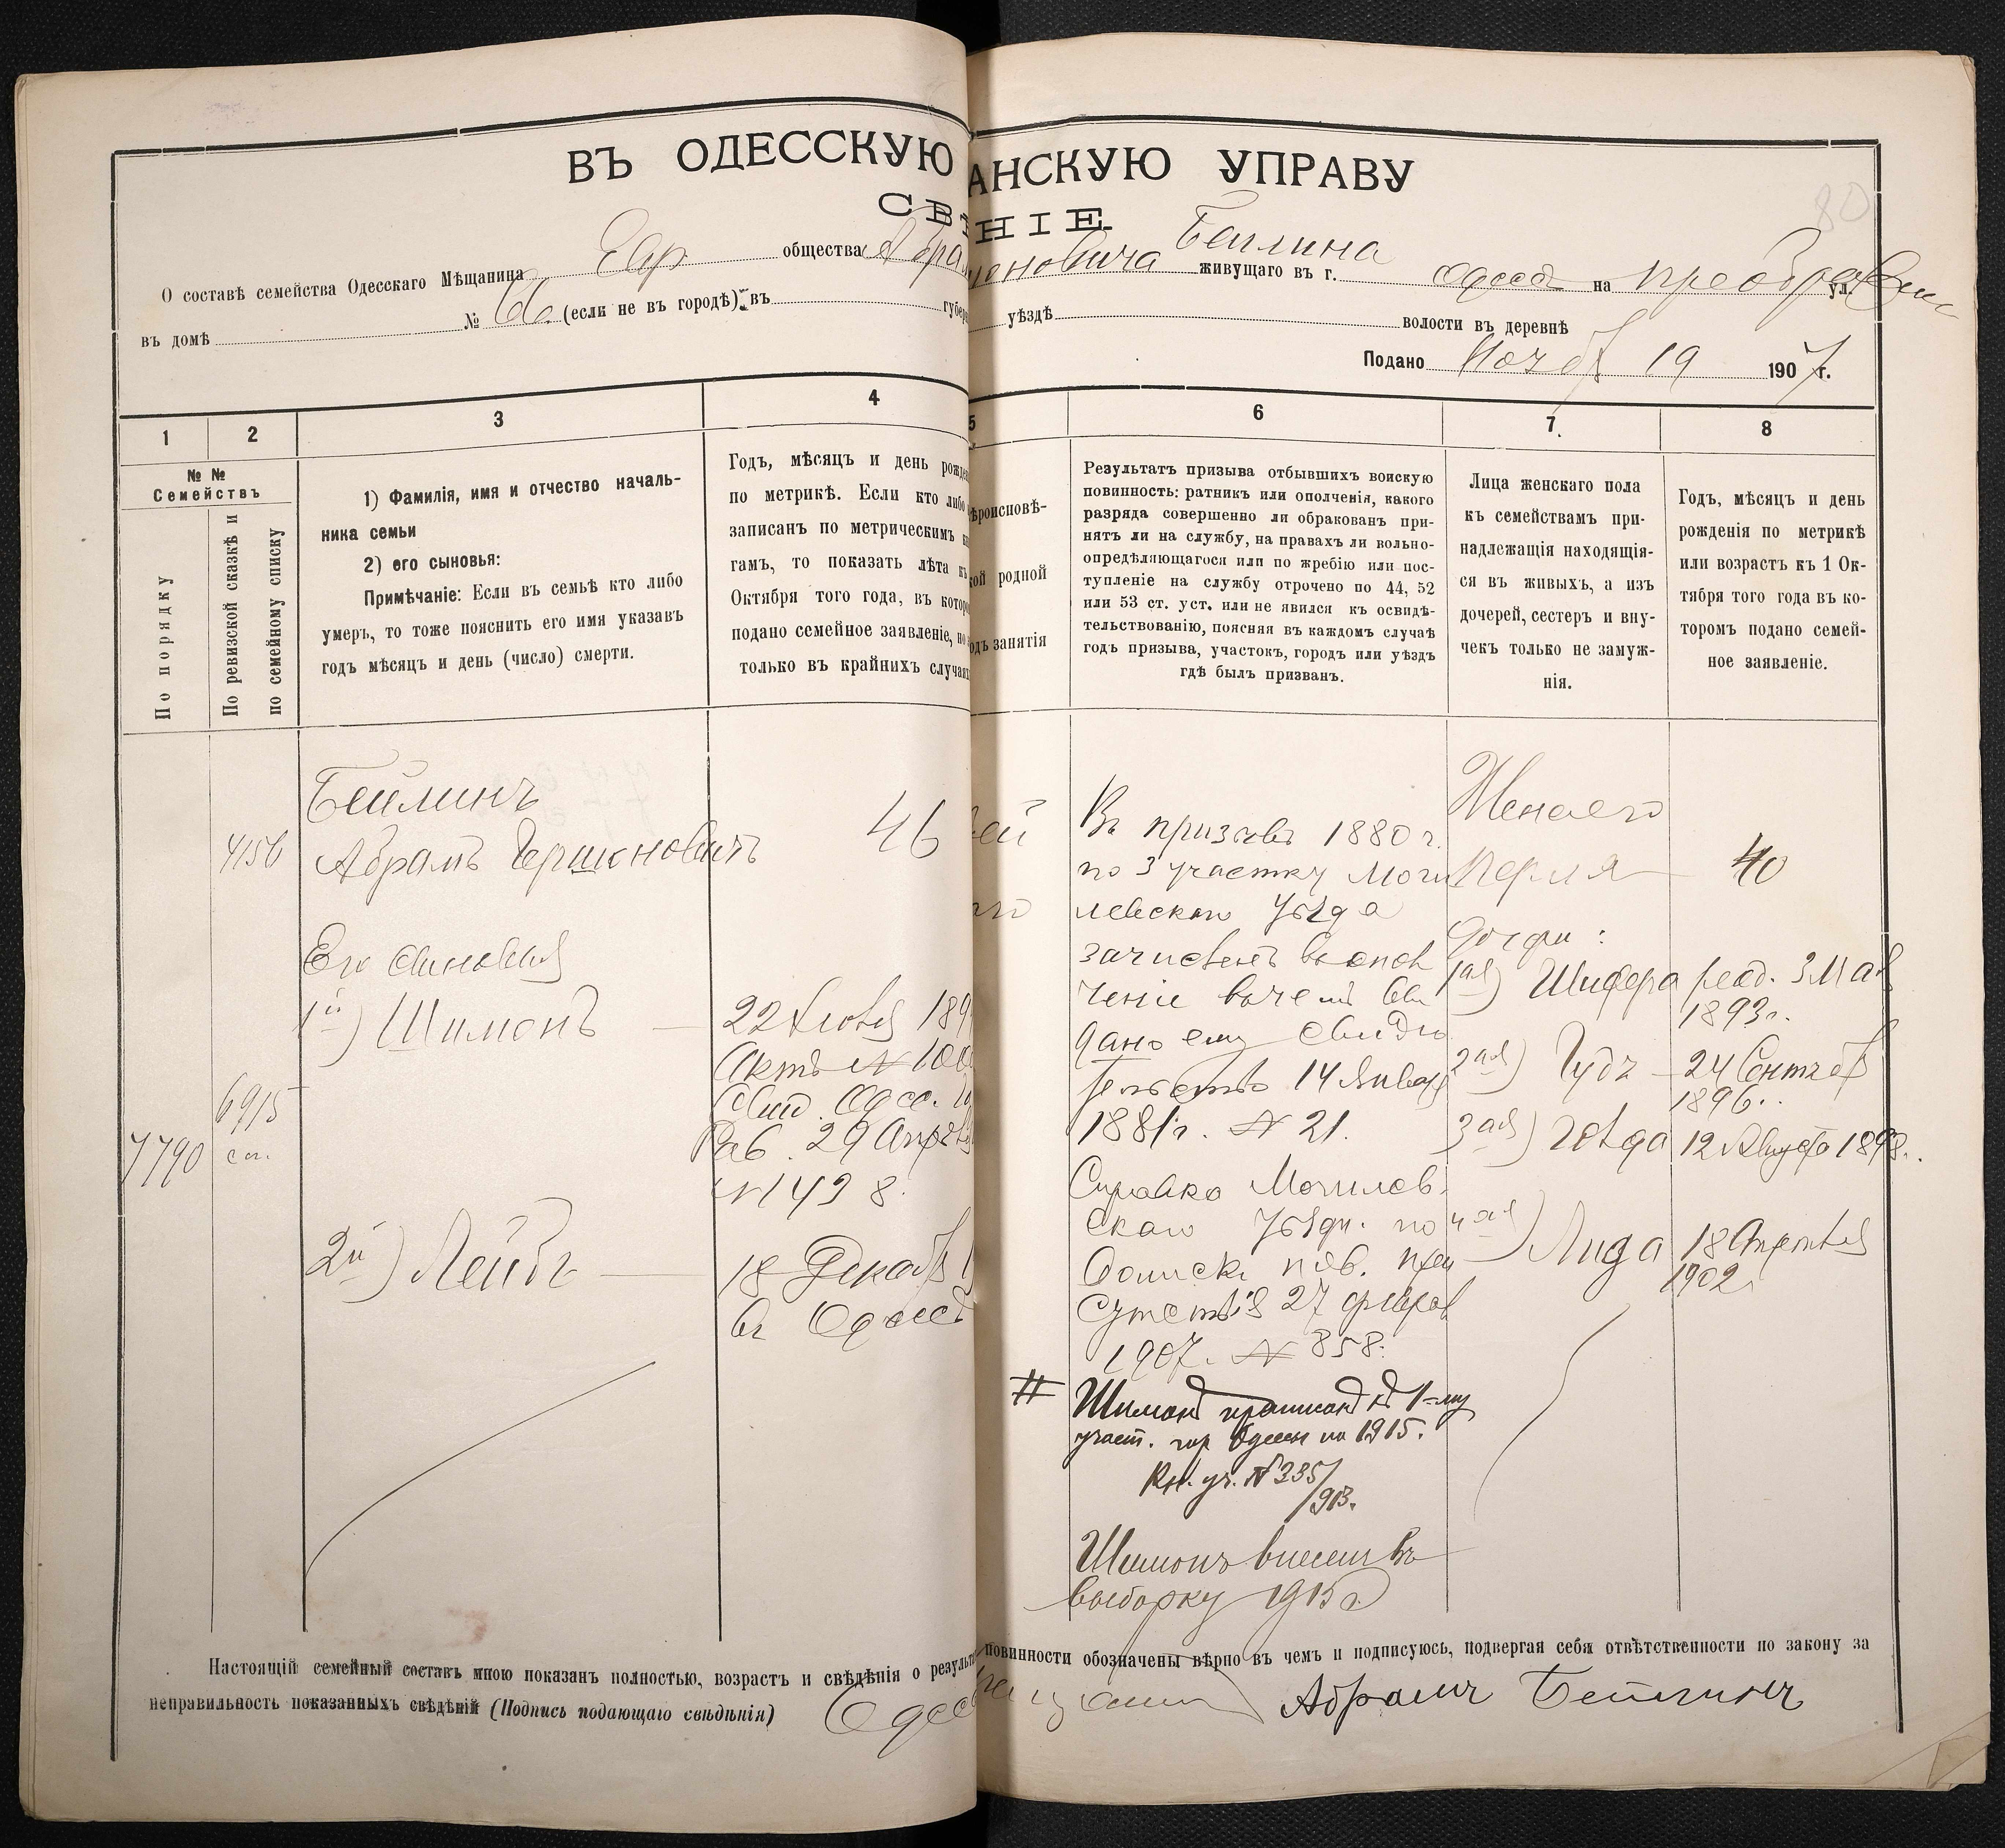 ВЪ ОДЕССКУЮ АНСКУЮ УПРАВУ
СВѢ НІЕ
О составѣ семейства Одесскаго Мѣщанина Евр общества Абрам еновича Бейлина живущаго въ г. Одессѣ на Преображенс ул.
въ домѣ № 66 (если не въ городѣ) въ губер уѣздѣ волости въ деревнѣ
Подано Ноября 19 1907 г.
1 2 3 4 5 6 7. 8
№ №
Семействъ
По порядку
По ревизской сказкѣ и
по семейному списку
1) Фамилія, имя и отчество началь-
ника семьи
2) его сыновья:
Примѣчаніе: Если въ семьѣ кто либо
умеръ, то тоже пояснить его имя указавъ
годъ мѣсяцъ и день (число) смерти.
Годъ, мѣсяцъ и день рожде
по метрикѣ. Если кто либо
записанъ по метрическимъ
гамъ, то показать лѣта къ
Октября того года, въ кото
подано семейное заявленіе, но
только въ крайнихъ случая
ѣроисповѣ-
кой родной
одъ занятія
Результатъ призыва отбывшихъ воискую
повинность: ратникъ или ополченія, какого
разряда совершенно ли обракованъ при-
нятъ ли на службу, на правахъ ли вольно-
опредѣляющагося или по жребію или пос-
тупленіе на службу отрочено по 44, 52
или 53 ст. уст. или не явился къ освидѣ-
тельствованію, поясняя въ каждомъ случаѣ
годъ призыва, участокъ, городъ или уѣздъ
гдѣ былъ призванъ.
Лица женскаго пола
къ семействамъ при-
надлежащія находящія-
ся въ живыхъ, а изъ
дочерей, сестеръ и вну-
чекъ только не замуж-
нія.
Годъ, мѣсяцъ и день
рожденія по метрикѣ
или возрастъ къ 1 Ок-
тября того года въ ко-
торомъ подано семей-
ное заявленіе.
7790
4156
6915
сп.
Бейлинъ
Абрамъ Гершкновичъ
46
Его сыновья
1й) Шимонъ
22 Іюля 189
Актъ № 100
Свид. Одес. Го
Раб. 29 Апрѣля
№ 1498.
2й) Лейбъ
18 Декабр 1
въ Одессѣ
ей
Въ призывъ 1880 г.
по 3 участку Моги
левскаго Уѣзда
зачисленъ въ опол
ченіе въ чемъ вы
дано ему свидѣ
тельство 14 Января
1881 г. № 21.
Справка Могилев.
скаго Уѣздн. по
воинск. пов. при
сутствія 27 феврал
1907. № 858.
# Шимонъ приписанъ къ 1-му
участ. гор Одессы на 1915.
Кн. уч. № 335/913.
Шимонъ внесенъ въ
выборку 1915 г
Жена его
Перля 40
Дочери:
1ая) Шифра род. 3 Мая
1893 г.
2ая) Гудъ 24 Сентябр
1896.
3ая) Гѣда 12 Августа 1898.
4ая) Лида 18 Апрѣля
1902
Настоящій семейный составъ мною показанъ полностью, возрастъ и свѣдѣнія о результа повинности обозначены вѣрно въ чемъ и подписуюсь, подвергая себя отвѣтственности по закону за
неправильность показанныхъ свѣдѣній (Подпись подающаго свѣдѣнія) Одес щанин Абрамъ Бейлинъ